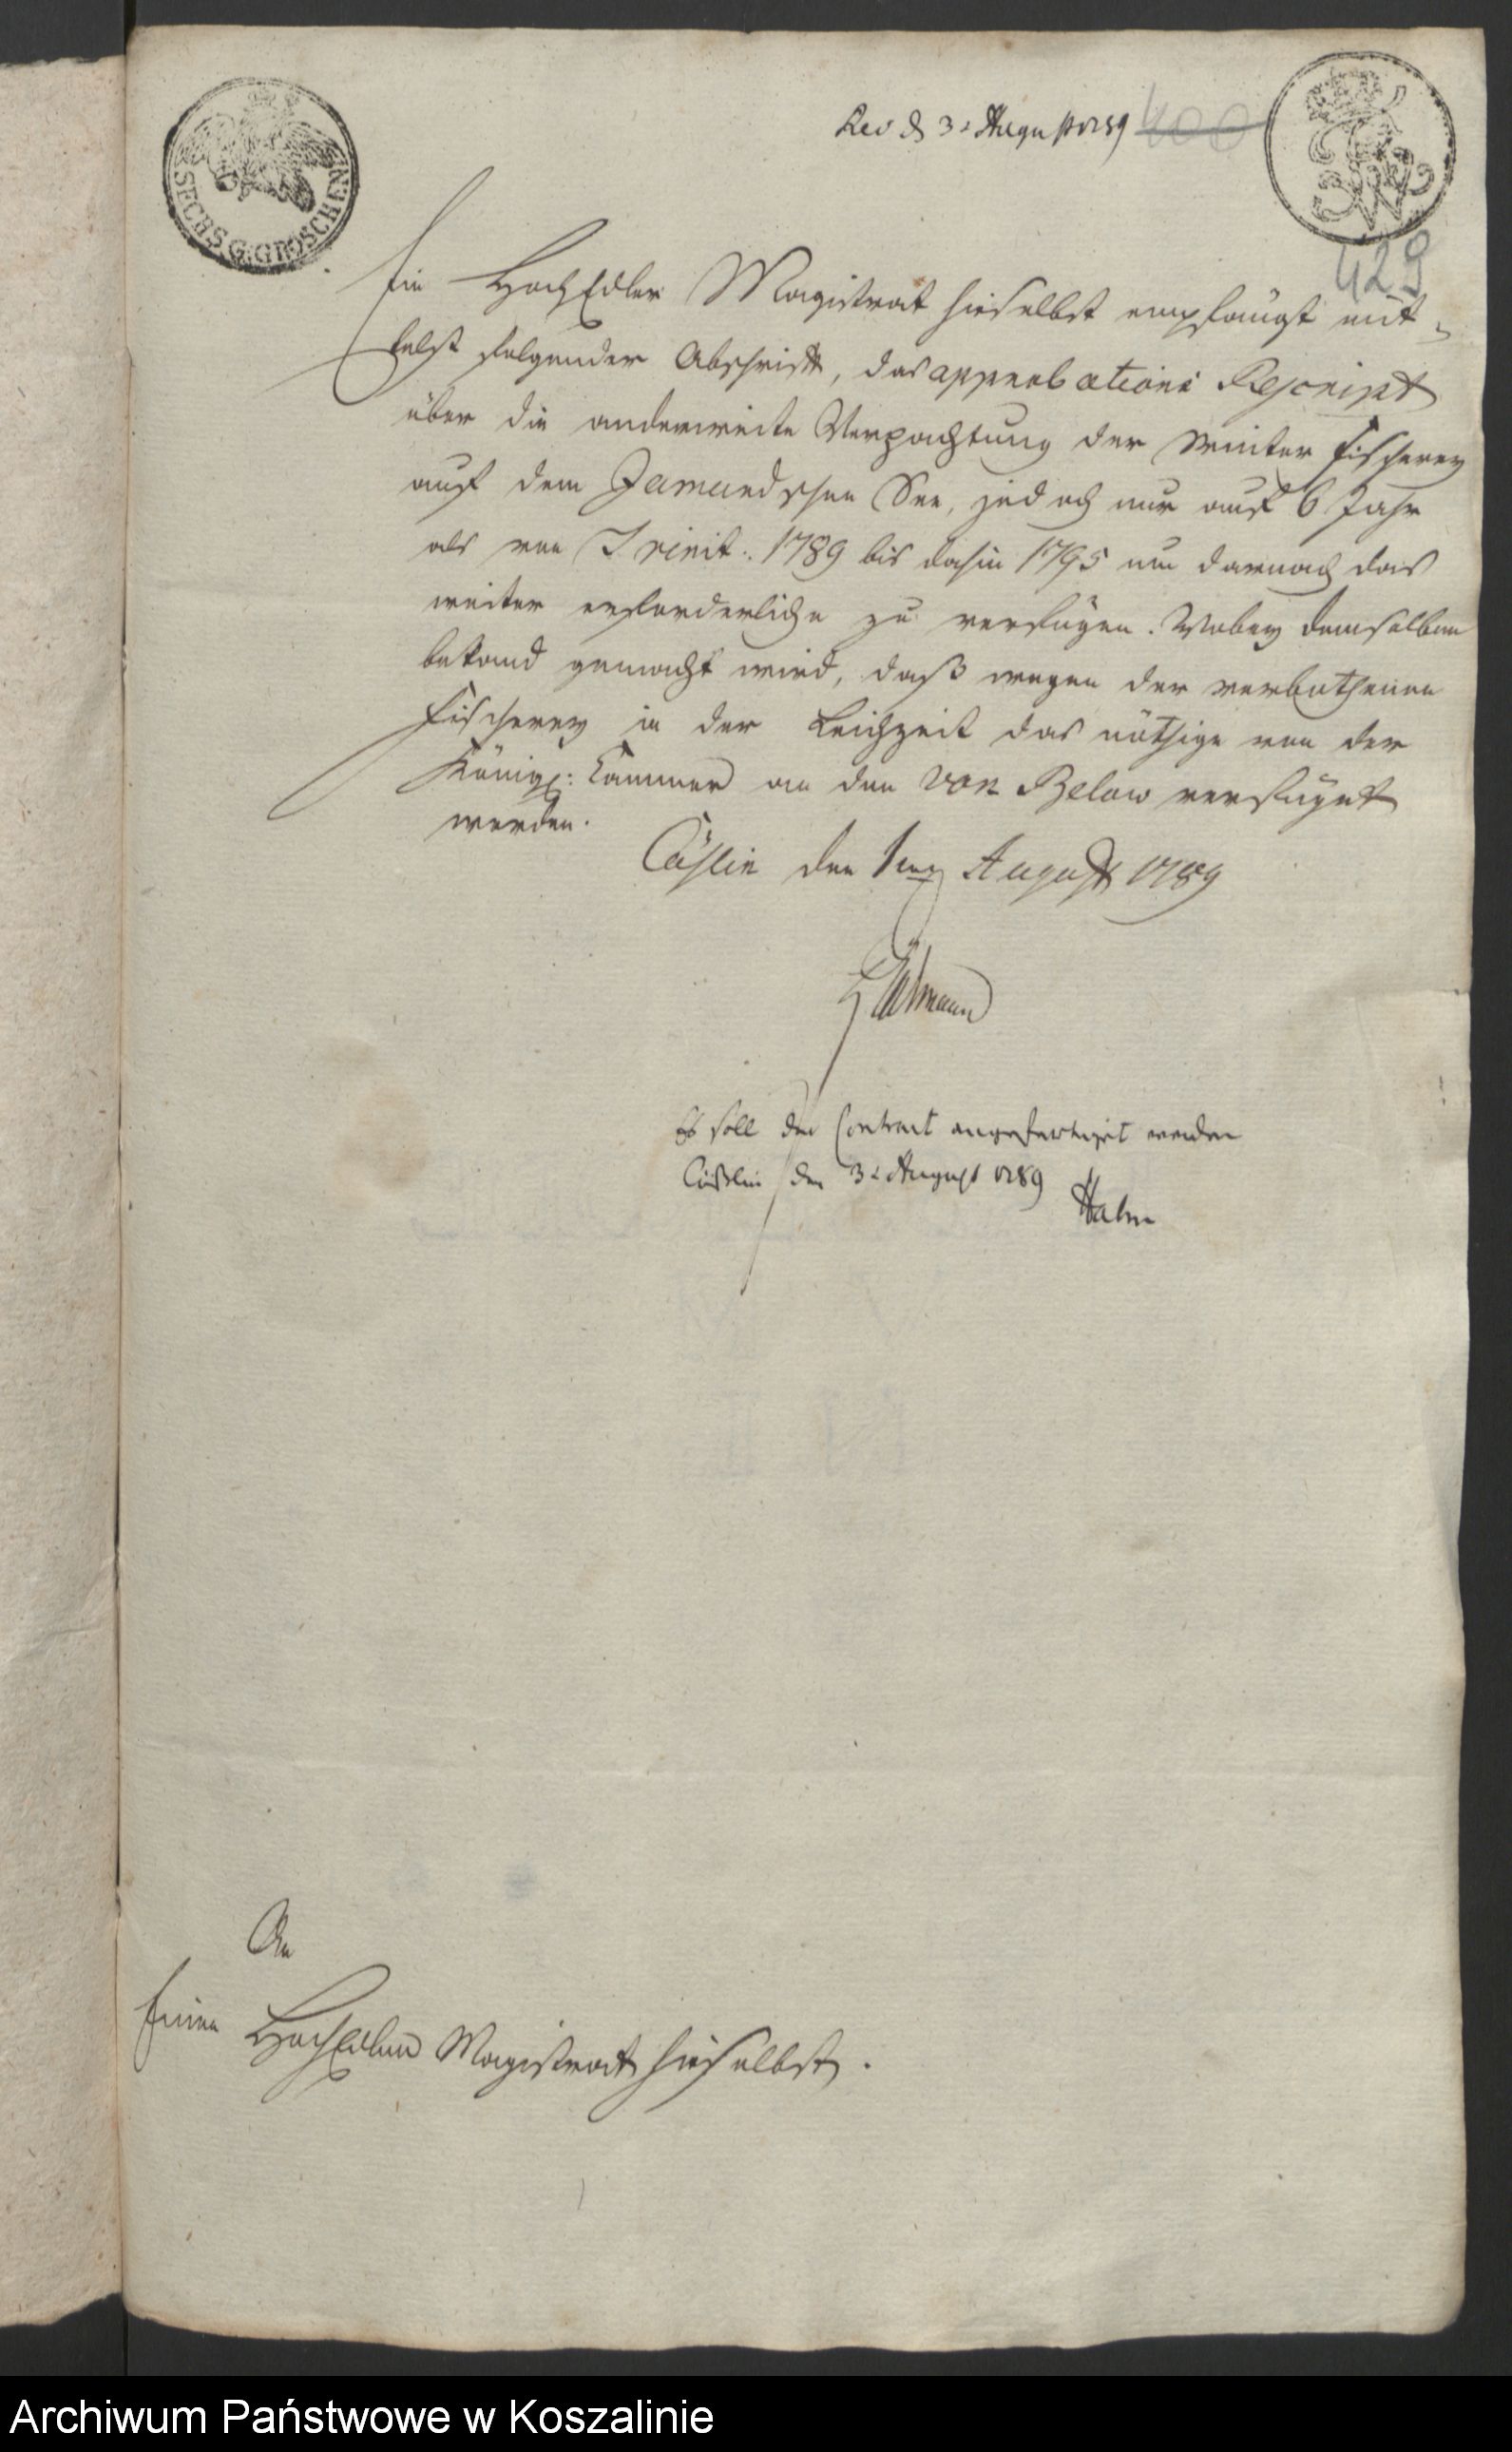 SECHS G. GROSCHEN
Rec d 3t August 1789
400
429
Ein HochEdler Magistrat hieselbst empfängt mit-
telst folgender Abschrift, das approbations Rescript
über die anderweite Verpachtung der Winter Fischerey
auf dem Jamundschen See, jedoch nur auf 6 Jahr
als von Trinit: 1789 bis dahin 1795 um darnach das
weiter erforderliche zu verfügen. Wobey demselben
bekand gemacht wird, daß wegen der verbothenen
Fischerey in der Leichzeit das nöthige von der
Königl: Cammer an den von Below verfüget
worden.
Cößlin den 1ten August 1789
Es soll der Contract angefertiget werden
Cößlin den 3t August 1789
Hahn
An
Einen HochEdlen Magistrat hieselbst.
Archiwum Państwowe w Koszalinie